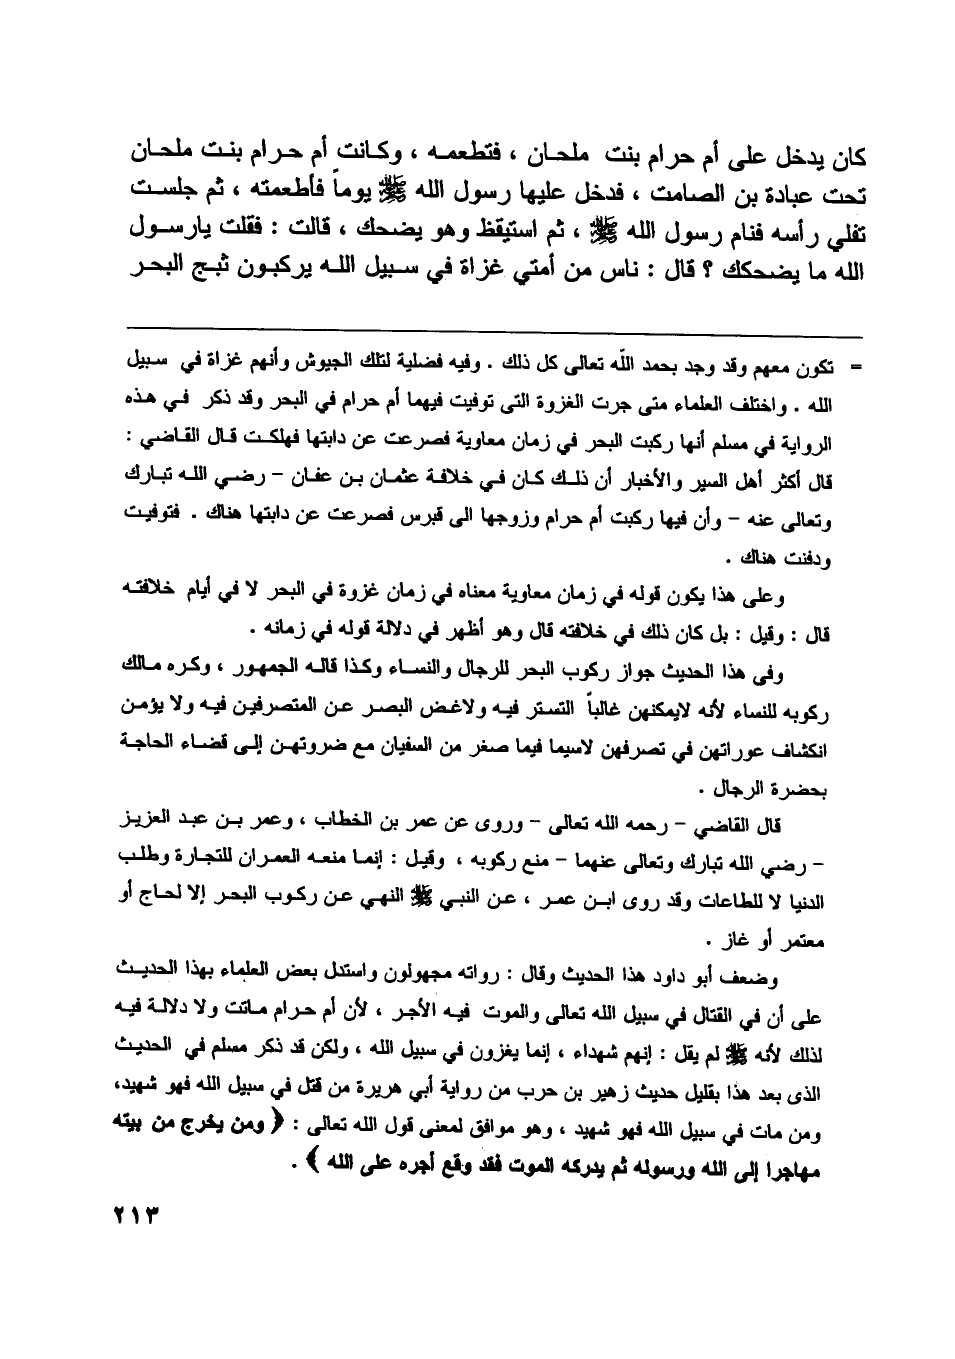 كان يدخل على أم حرام بنت ملحان ، فتطعمه ، وكانت أم حرام بنت ملحان
تحت عبادة بن الصامت ، فدخل عليها رسول الله ﷺ يوماً فأطعمته ، ثم جلست
تفلي رأسه فنام رسول الله ﷺ ، ثم استيقظ وهو يضحك ، قالت : فقلت يارسول
الله ما يضحكك ؟ قال : ناس من أمتي غزاة في سبيل الله يركبون ثبج البحر
= تكون معهم وقد وجد بحمد الله تعالى كل ذلك . وفيه فضلية لتلك الجيوش وأنهم غزاة في سبيل
الله . واختلف العلماء متى جرت الغزوة التى توفيت فيهما أم حرام في البحر وقد ذكر في هذه
الرواية في مسلم أنها ركبت البحر في زمان معاوية فصرعت عن دابتها فهلكت قال القاضي :
قال أكثر أهل السير والأخبار أن ذلك كان في خلافة عثمان بن عفان - رضي الله تبارك
وتعالى عنه - وأن فيها ركبت أم حرام وزوجها الى قبرس فصرعت عن دابتها هناك . فتوفيت
ودفنت هناك .
وعلى هذا يكون قوله في زمان معاوية معناه في زمان غزوة في البحر لا في أيام خلافته
قال : وقيل : بل كان ذلك في خلافته قال وهو أظهر في دلالة قوله في زمانه .
وفى هذا الحديث جواز ركوب البحر للرجال والنساء وكذا قاله الجمهور ، وكره مالك
ركوبه للنساء لأنه لايمكنهن غالباً التستر فيه ولاغض البصر عن المتصرفين فيه ولا يؤمن
انكشاف عوراتهن في تصرفهن لاسيما فيما صغر من السفيان مع ضروتهن إلى قضاء الحاجة
بحضرة الرجال .
قال القاضي - رحمه الله تعالى - وروى عن عمر بن الخطاب ، وعمر بن عبد العزيز
- رضي الله تبارك وتعالى عنهما - منع ركوبه ، وقيل : إنما منعه العمران للتجارة وطلب
الدنيا لا للطاعات وقد روى ابن عمر ، عن النبي ﷺ النهي عن ركوب البحر إلا لحاج أو
معتمر أو غاز .
وضعف أبو داود هذا الحديث وقال : رواته مجهولون واستدل بعض العلماء بهذا الحديث
على أن في القتال في سبيل الله تعالى والموت فيه الأجر ، لأن أم حرام ماتت ولا دلالة فيه
لذلك لأنه ﷺ لم يقل : إنهم شهداء ، إنما يغزون في سبيل الله ، ولكن قد ذكر مسلم في الحديث
الذى بعد هذا بقليل حديث زهير بن حرب من رواية أبي هريرة من قتل في سبيل الله فهو شهيد،
ومن مات في سبيل الله فهو شهيد ، وهو موافق لمعنى قول الله تعالى : ﴿ ومن يخرج من بيته
مهاجرا إلى الله ورسوله ثم يدركه الموت فقد وقع أجره على الله ﴾ .
٢١٣